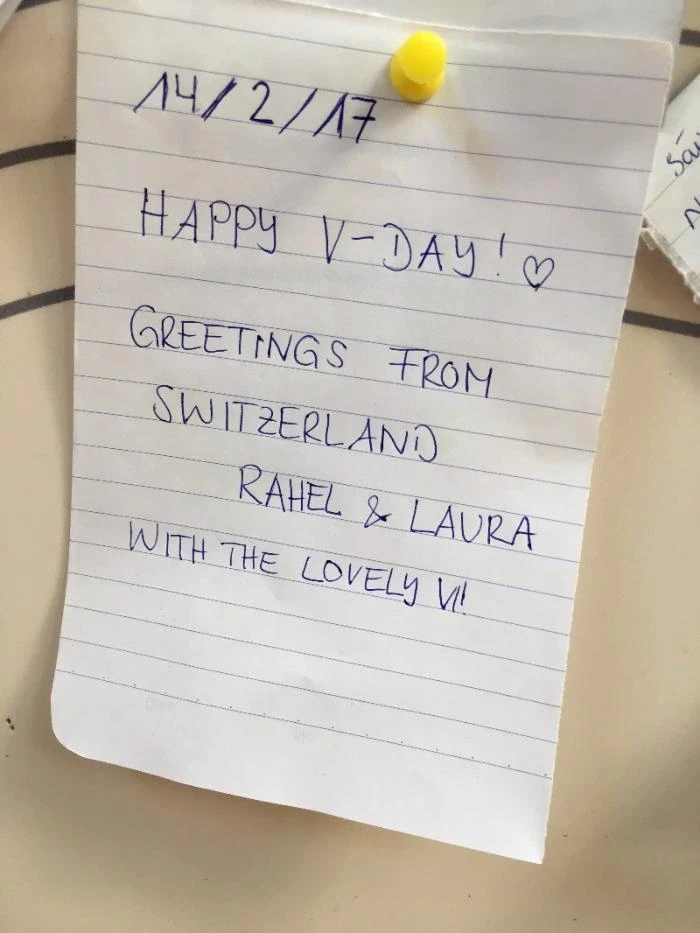 14/2/17
HAPPY V-DAY! ♡
GREETINGS FROM
SWITZERLAND
RAHEL & LAURA
WITH THE LOVELY VI!